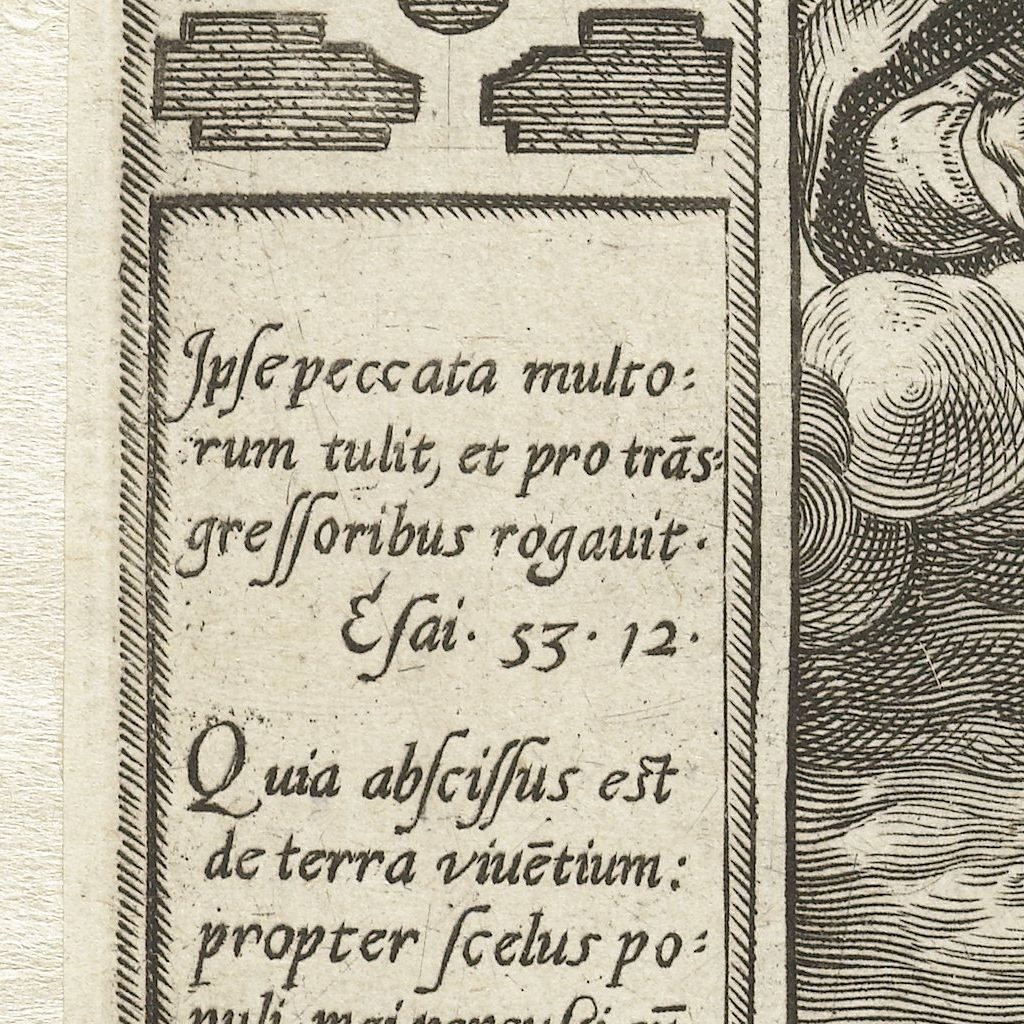 Jpſe peccata multo:
rum tulit, et pro trās:
greſſoribus rogauit.
Eſai. 53. 12.
Quia abſciſſus eſt
de terra viuētium:
propter ſcelus po:
puli mei percuſſi eū